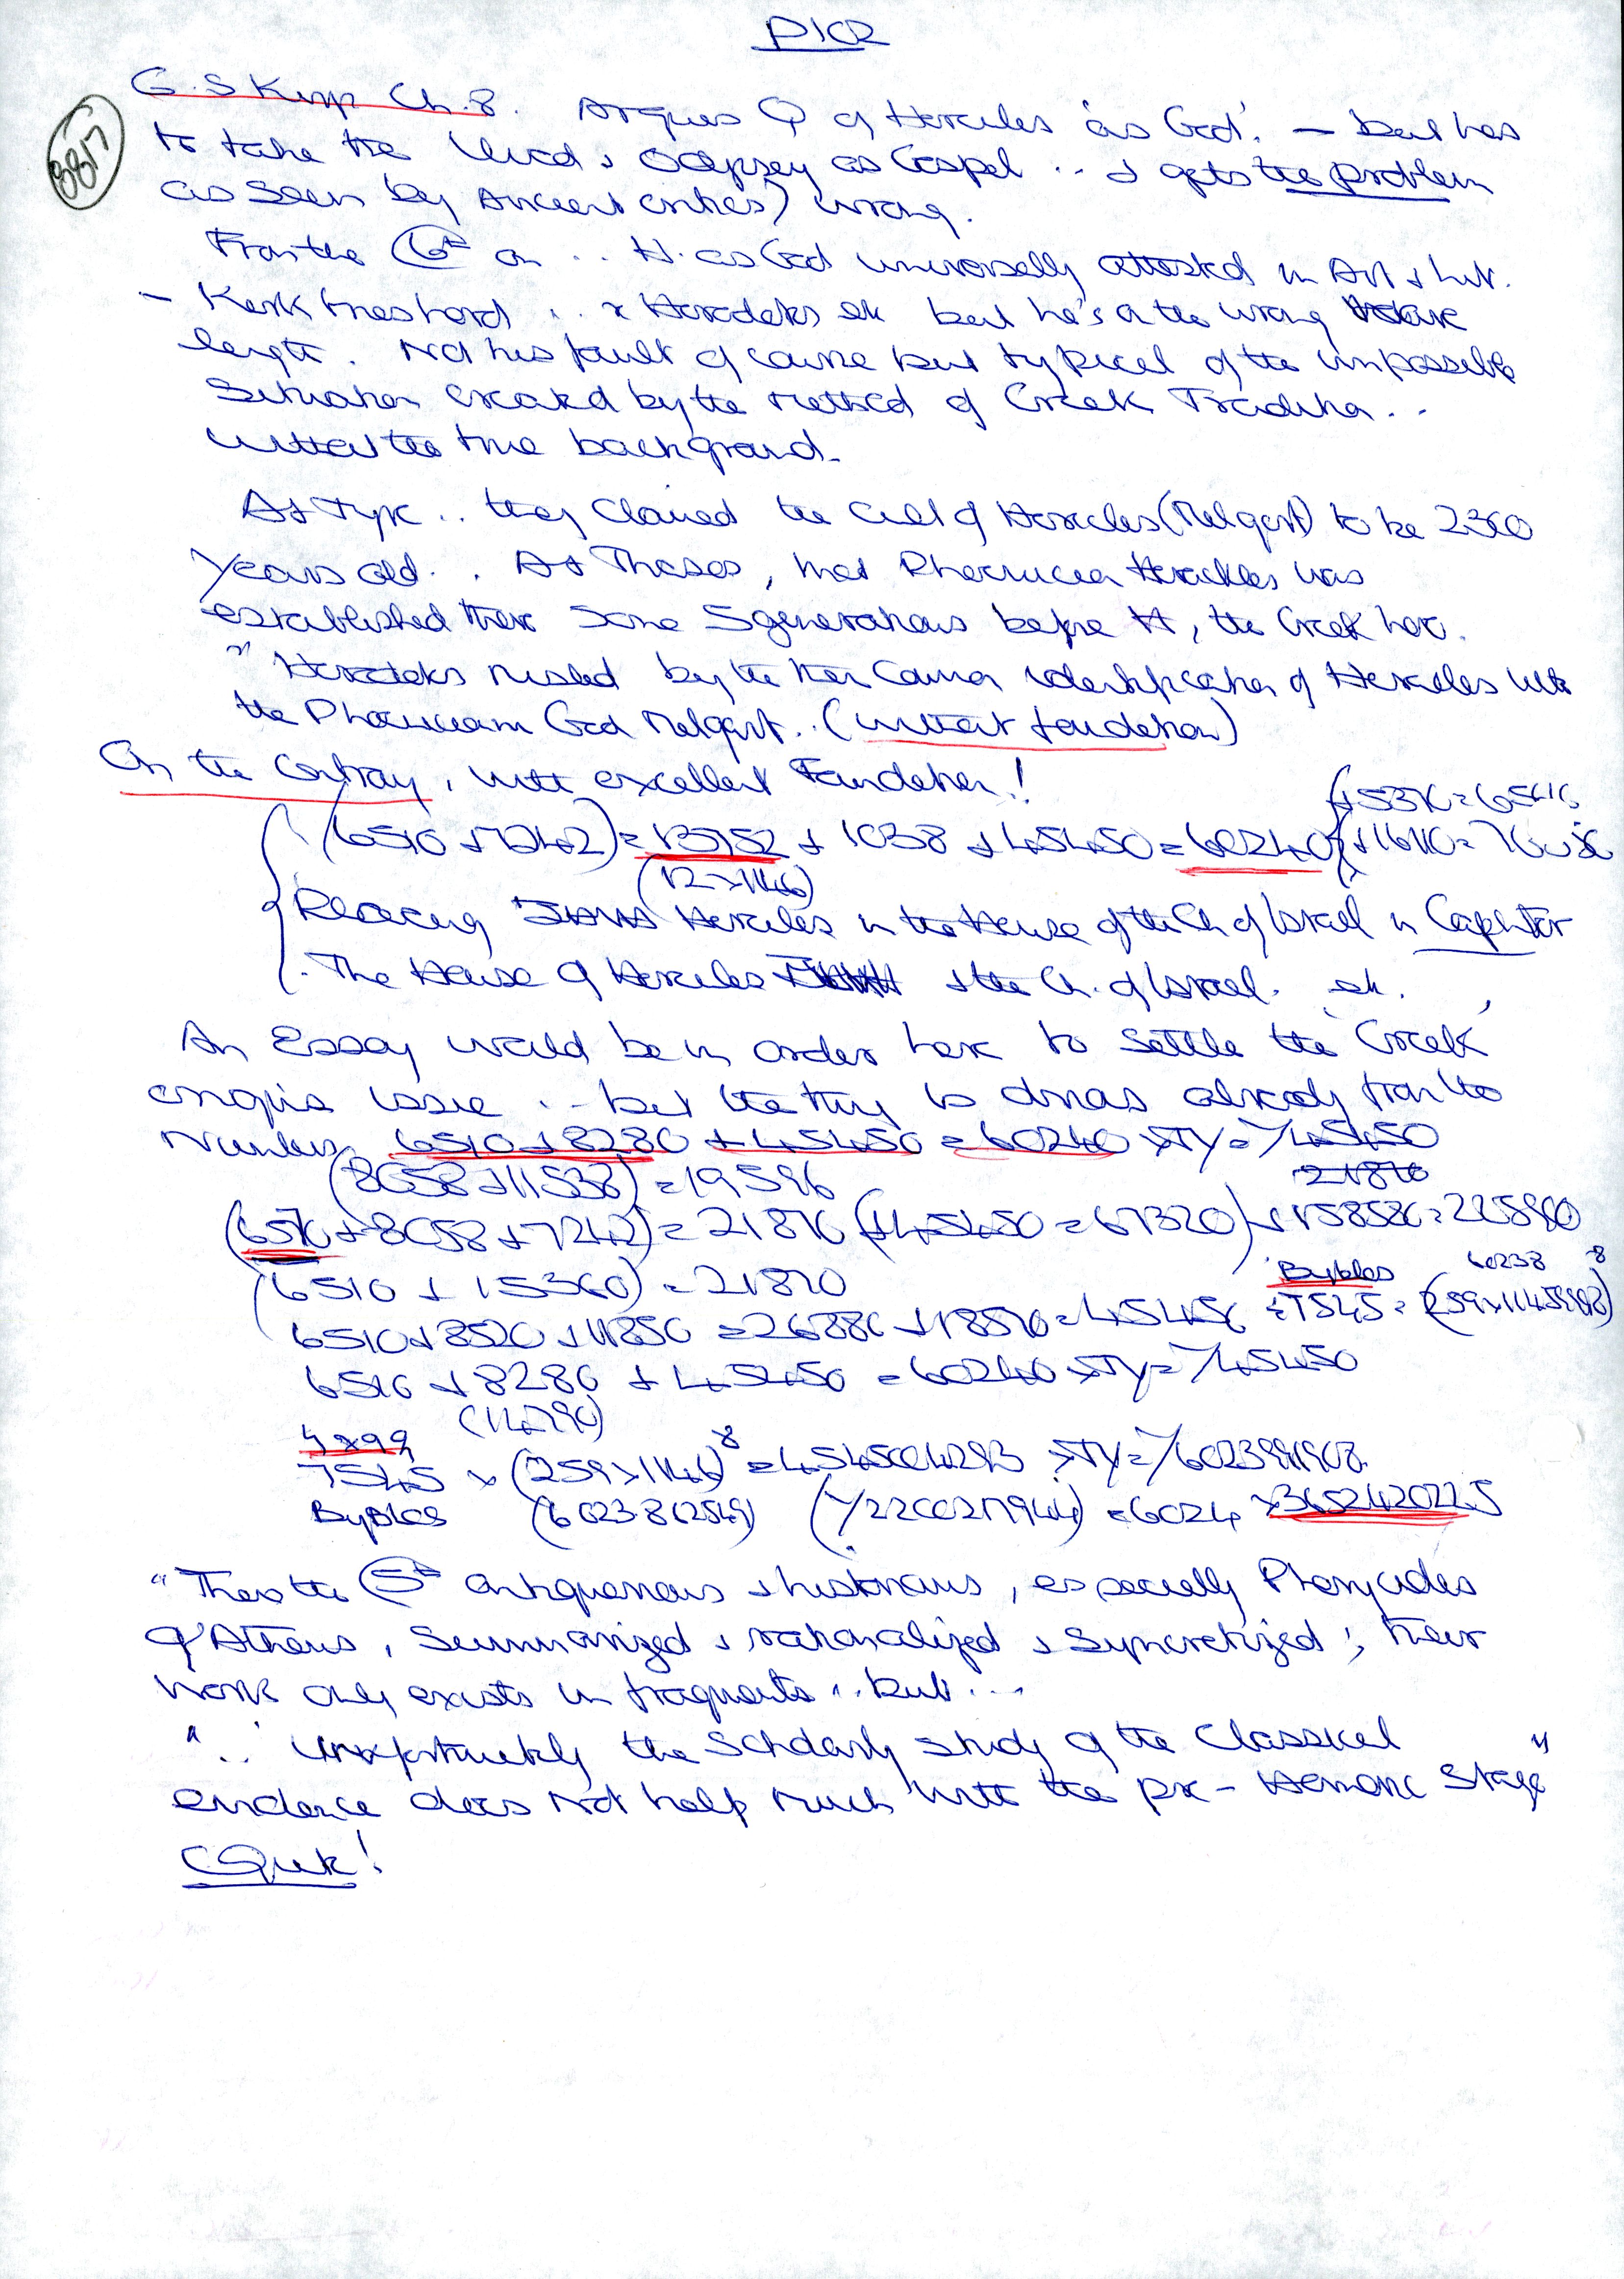 P102
3817
G.S Kirk Ch. 8. Argues Q of Hercules 'as God'. — but has
to take the Iliad & Odyssey as Gospel .. & gets the problem
as seen by Ancient critics) wrong.
From the 6th on .. H. as God universally attested in Art & Lit.
- Kirk tries hard .. & Herodotus etc but he's on the wrong wave
length. Not his fault of course but typical of the impossible
Situation created by the method of Greek Tradition ..
without the true background.
At Tyre .. they claimed the cult of Heracles (Melqart) to be 2300
years old. . At Thasos, that Phoenician Herakles was
established there some 5 generations before H, the Greek hero.
" Herodotus misled by the then common identification of Heracles with
the Phoenician God Melqart. . (without foundation)
On the contrary, with excellent Foundation!
(6510 + 7242) = 13752 + 1038 + 45450 = 60240
(12 x 1146)
Placing Hercules in the House of the Ch of Israel in
The House of Hercules & the Ch. of Israel. etc.
An Essay would be in order here to settle the 'Greek'
origins issue .. but the thing is always already from the
Numbers 6510 + 8280 + 45450 = 60240 x TY = /45450
(8058 + 11538) = 19596
21870
(6510 + 8058 + 7242) = 21870 (+45450 = 67320) + 158580 = 225900
(6510 + 15360) = 21870
Byblos
6510 + 8520 + 11850 = 26880 + 18570 = 45450
6510 + 8280 + 45450 = 60240 x TY = /45450
(14790)
7545 x (259 x 1146)8 = 4545004293 x TY = /6023991908
Byblos (6023862549) (/2200217944) = 6024 x 3652420225
"Then the 5th antiquarians & historians, especially Pherycides
of Athens, summarized & rationalized & syncretized; their
work only exists in fragments .. but ...
" .. Unfortunately the scholarly study of the Classical
evidence does not help much with the pre-Homeric stage"
Quite!